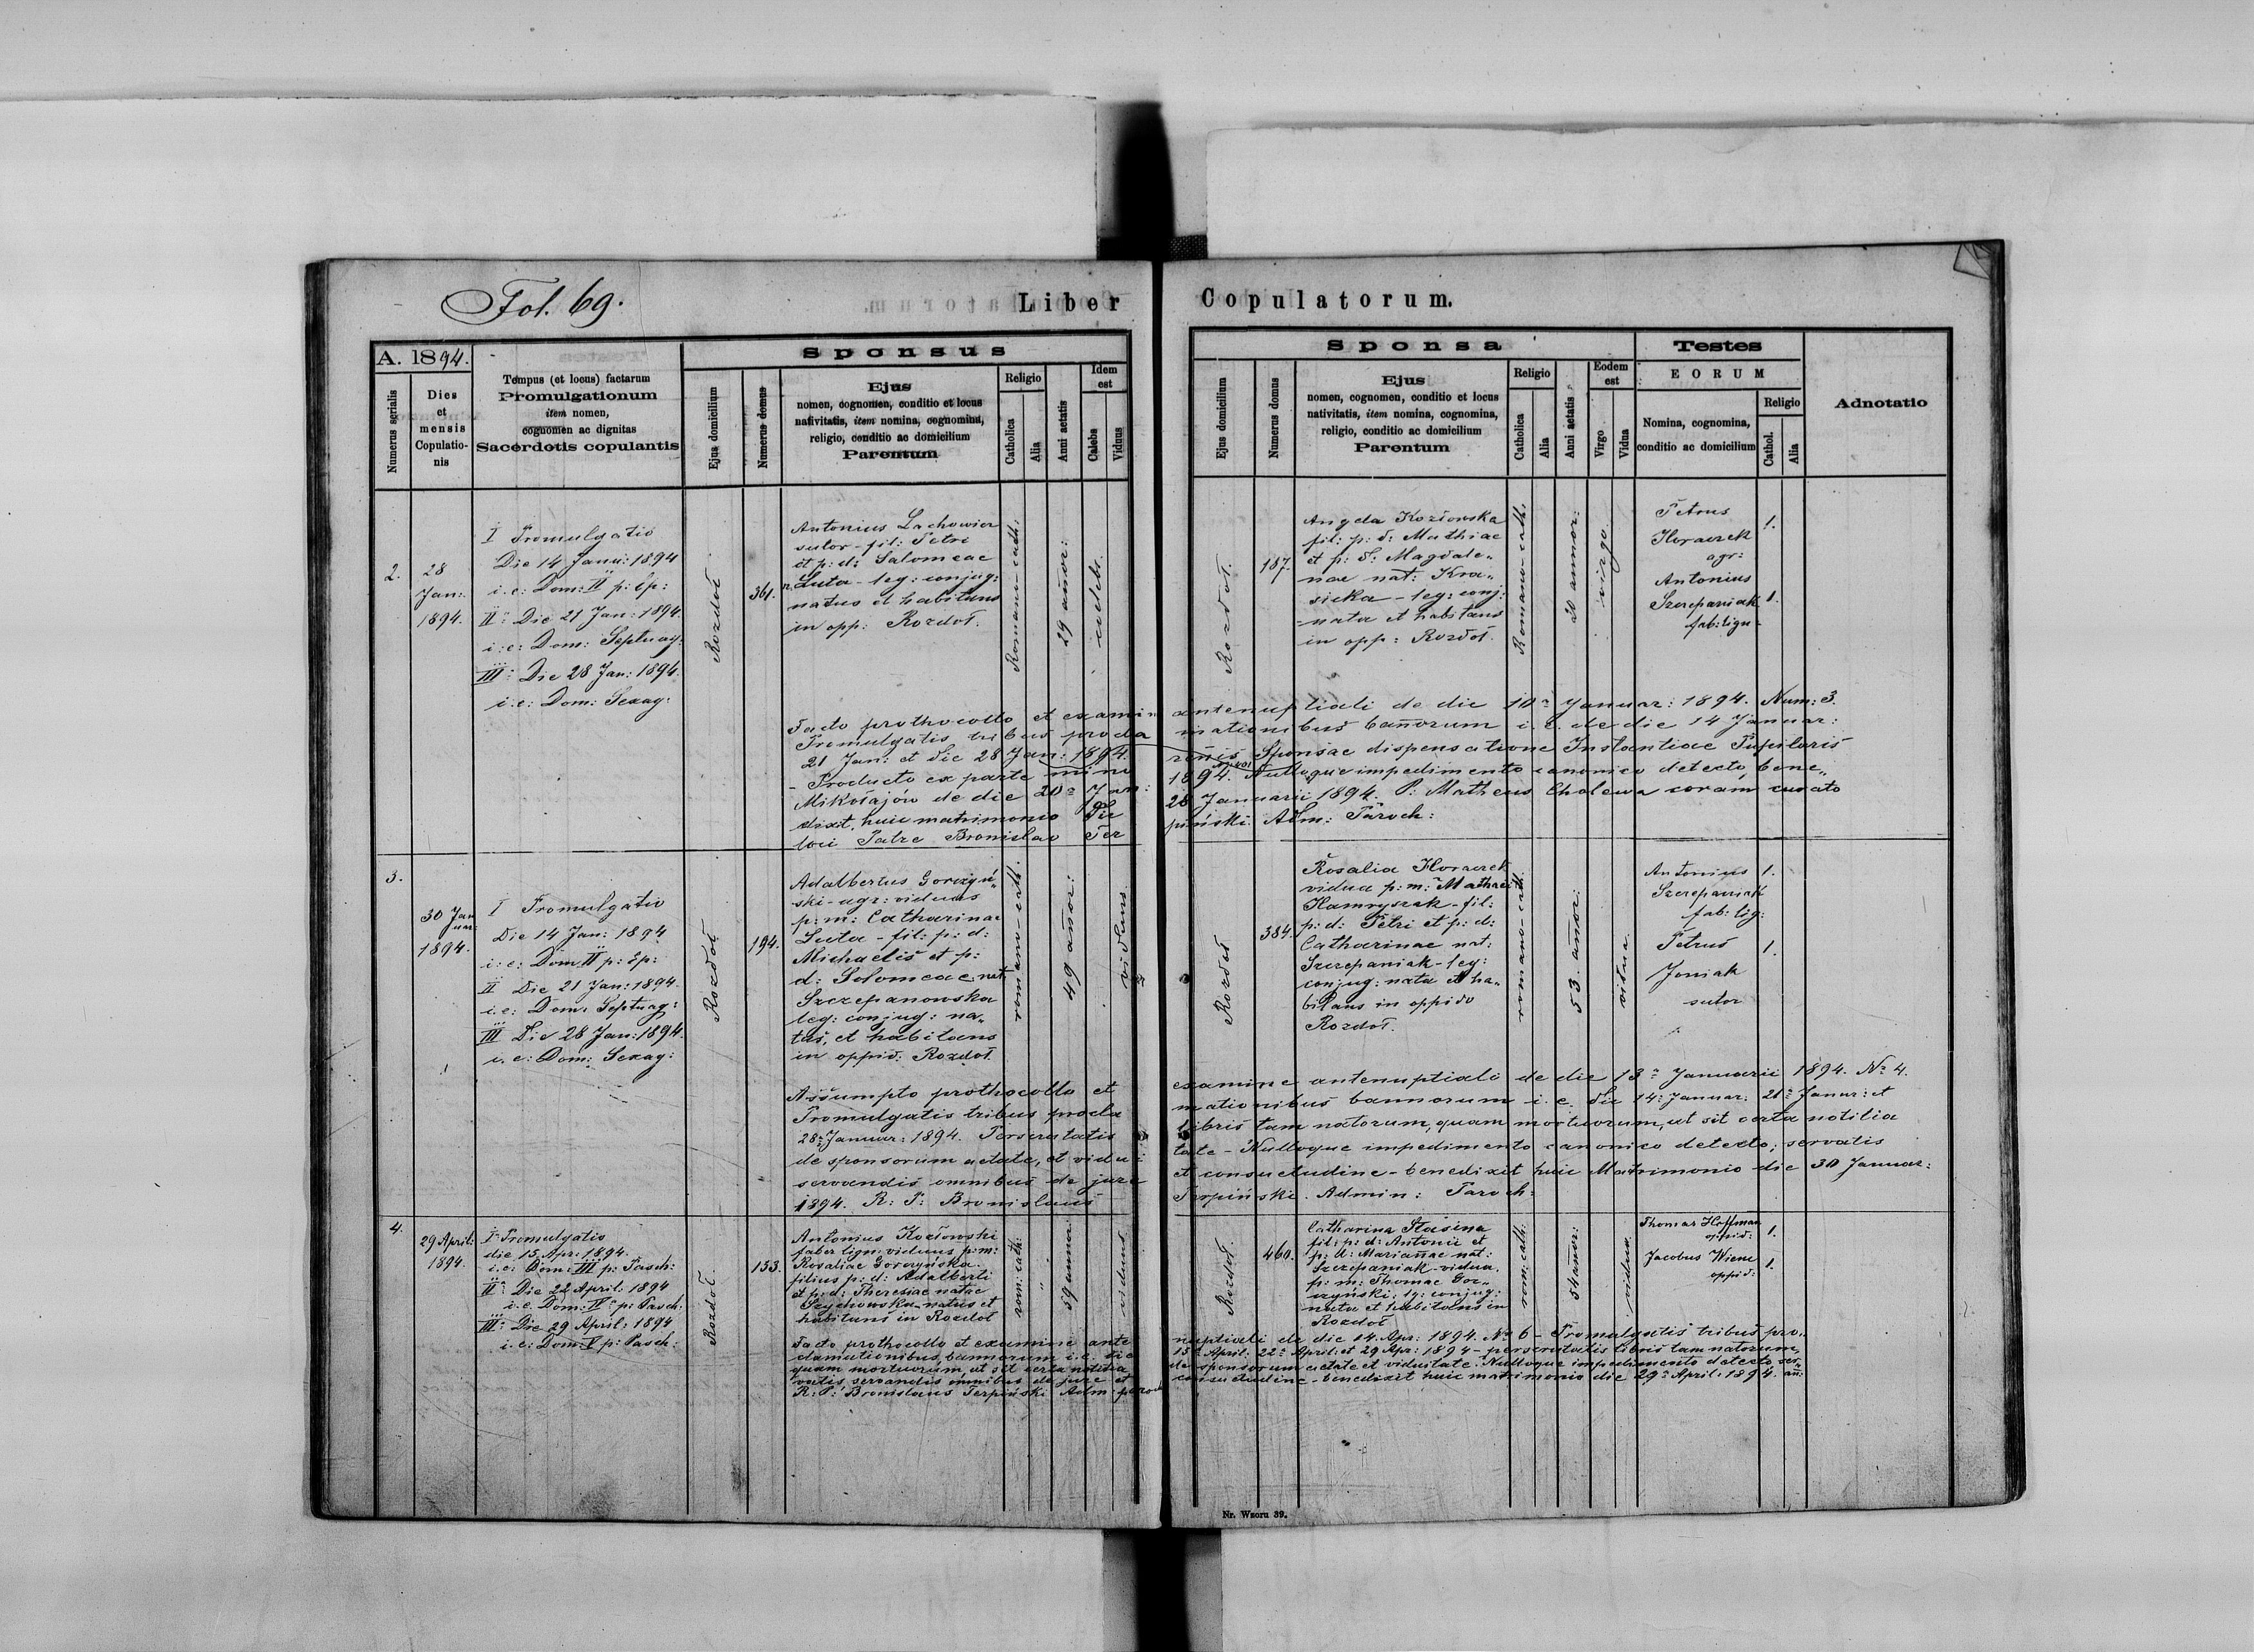 Fol. 69.
Liber Copulatorum.
A. 1894.
Numerus serialis
Dies
et
mensis
Copulatio-
nis
Tempus (et locus) factarum
Promulgationum
item nomen,
cognomen ac dignitas
Sacerdotis copulantis
Sponsus
Ejus domicilium
Numerus domus
Ejus
nomen, cognomen, conditio et locus
nativitatis, item nomina, cognomina,
religio, conditio ac domicilium
Parentum
Religio
Catholica
Alia
Anni aetatis
Idem
est
Calebs
Viduus
Sponsa
Ejus domicilium
Numerus domus
Ejus
nomen, cognomen, conditio et locus
nativitatis, item nomina, cognomina,
religio, conditio ac domicilium
Parentum
Religio
Catholica
Alia
Anni aetatis
Eodem
est
Virgo
Vidua
Testes
EORUM
Nomina, cognomina,
conditio ac domicilium
Religio
Cathol.
Alia
Adnotatio
2.
28
Jan:
1894.
I Promulgatio
Die 14 Janu: 1894
i.e: Dom: II p: Ep:
II Die 21 Jan: 1894.
i:e: Dom: Septuag:
III Die 28 Jan: 1894.
i.e: Dom: Sexag:
Rozdoł
361.
Antonius Lachowicz
sutor - fil: Petri
et p: d: Salomeae
n. Luta - leg: conjug:
natus et habitans
in opp: Rozdoł.
Romano-cath:
29 añor:
caelebs.
Rozdoł.
187.
Angela Kozłowska
fil: p: d: Mathiae
et p: d: Magdale„
nae nat: Kra„
sicka - leg: conj:
nata et habitans
in opp: Rozdoł.
Romano-cath:
20 annor:
virgo
Petrus
Horaczek
agr:
1.
Antonius
Szczepaniak
fab: lign
1.
Facto prothocollo et examin antenuptiali de die 10ª Januar: 1894. Num: 3.
Promulgatis tribus procla mationibus bañorum i.e. de die 14 Januar:
21 Jan: et die 28 Jan: 1894.
- Producto ex parte mino rënis Sponsae dispensatione Instantiae Pupilaris
Mikołajów de die 20ª Jan: 1894. Nulloque impedimento canonico detecto, bene„
dixit huic matrimonio die 28 Januarii 1894. P: Matheus Cholewa coram curato
loci Patre Bronislao Ter piński. Adm: Paroch:
3.
30 Jan
uar:
1894.
I Promulgatio
Die 14 Jan: 1894
i: e: Dom II p: Ep:
II Die 21 Jan: 1894.
i.e: Dom: Septuag:
III Die 28 Jan: 1894.
i.e: Dom: Sexag:
Rozdoł
194.
Adalbertus Gorczyń„
ski - agr: viduus
p: m: Catharinae
Luta - fil: p: d:
Michaelis et p:
d: Solomeae nat.
Szczepanowska
leg: conjug: na„
tus, et habitans
in oppid: Rozdoł.
romano-cath.
49 añor:
viduus
Rozdoł
384.
Rosalia Horaczek
vidua p: m: Mathaei
Hamryszak - fil:
p: d: Petri et p: d:
Catharinae nat:
Szczepaniak - leg:
conjug: nata et ha„
bitans in oppido
Rozdoł.
romano-cath.
53. añor:
vidua.
Antonius
Szczepaniak
fab: lig:
1.
Petrus
Joniak
sutor
1.
Assumpto prothocollo et examine antenuptiali de die 13ª Januarii 1894. Nº 4.
Promulgatis tribus procla mationibus bannorum i.e. die 14ª Januar: 21ª Januar: et
28ª Januar: 1894. Perscrutatis libris tam natorum, quam mortuorum, ut sit certa notitia
de sponsorum aetate, et vidui tate - Nulloque impedimento canonico detecto; servatis
servandis omnibus de jure et consuetudine - benedixit huic Matrimonio die 30 Januar:
1894. R: P: Bronislaus Terpiński. Admin: Paroch:
4.
29 April:
1894.
I Promulgatio
die 15 Apr: 1894.
i.e: Dom: III p: Pasch:
II Die 22 April: 1894
i.e: Dom: IV p: Pasch:
III Die 29 April: 1894
i.e: Dom V p: Pasch:
Rozdoł.
153.
Antonius Kozłowski
faber lign: viduus p: m:
Rosaliae Gorczyńska.
filius p: d: Adalberti
et p: d: Theresiae natae
Szychowska natus et
habitans in Rozdoł
rom: cath:
59 annor:
viduus
Rozdoł.
460.
Catharina Stasina
fil: p: d: Antonii et
p: d: Mariañae nat:
Szczepaniak - vidua
p: m: Thomae Gor„
czyński; lg: conjug:
nata et habitans in
Rozdoł
rom: cath:
54 añor:
vidua.
Thomas Hoffman
oppid:
1.
Jacobus Wiene
oppid:
1.
Facto prothocollo et examine ante nuptiali de die 14. Apr: 1894. Nº 6 - Promulgatis tribus pro„
clamationibus bannorum i.e. die 15ª April: 22ª April: et 29 Apr: 1894 - perscrutatis libris tam natorum,
quam mortuorum ut sit certa notitia de sponsorum aetate et viduitate. Nulloque impedimento detecto, ser„
vatis servandis omnibus de jure et consuetudine - benedixit huic matrimonio die 29ª April: 1894. añ:
R: P: Bronislaus Terpiński Adm: paroch
Nr. Wzoru 39.